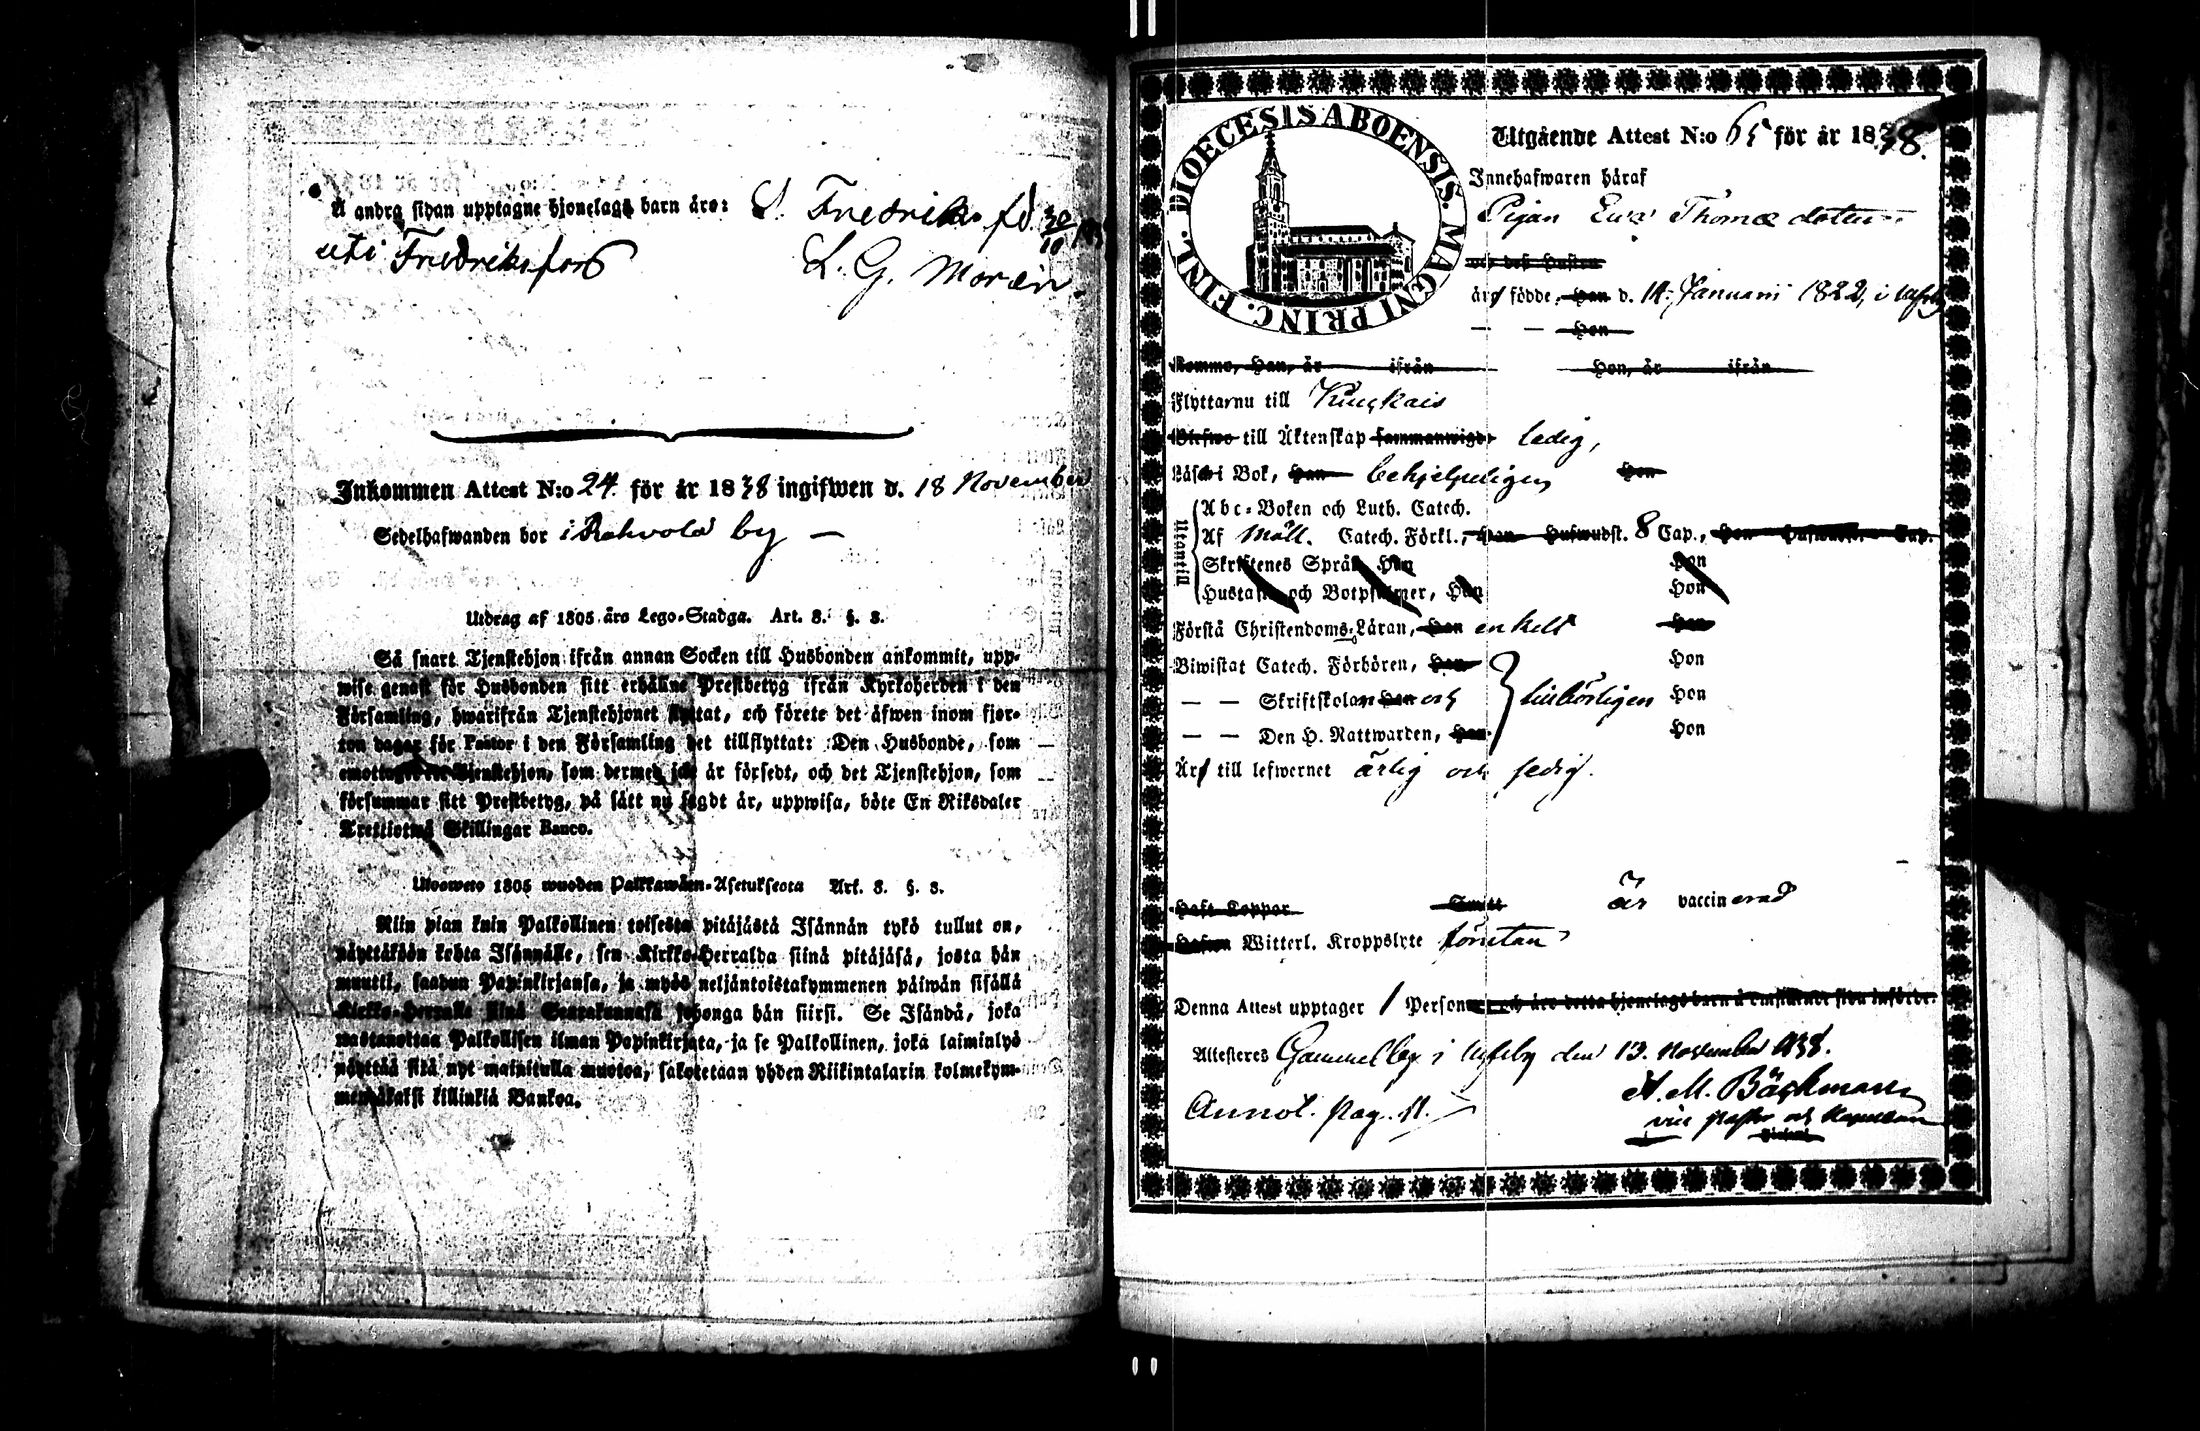 Å andra sidan upptagne hjonelags barn äro: S. Fredrik fd. 30/10
uti Fredriksfors L. G. Morén.
Inkommen Attest N:o 24. för år 1838 ingifwen d. 18 November
Sedelhafwanden bor i Rahvola by —
Utdrag af 1805 års Lego-Stadga. Art. 8. §. 3.
Så snart Tjenstehjon ifrån annan Socken till Husbonden ankommit, upp-
wise genast för Husbonden sitt erhållne Prestbetyg ifrån Kyrkoherden i den
Församling, hwarifrån Tjenstehjonet flyttat, och förete det äfwen inom fjor-
ton dagar för Pastor i den Församling det tillflyttat: Den Husbonde, som
emottager Tjenstehjon, som dermed icke är försedt, och det Tjenstehjon, som
försummar sitt Prestbetyg, på sätt nu sagdt är, uppwisa, böte En Riksdaler
Trettiotwå Skillingar Banco.
Ulosweto 1805 wuoden Palkkawäen-Asetuksesta Art. 8. §. 3.
Niin pian kuin Palkollinen toisesta pitäjästä Isännän tykö tullut on,
näyttäköön kohta Isännälle, sen Kirkko-Herralda siinä pitäjäsä, josta hän
muutti, saadun Papinkirjansa, ja myös neljäntoistakymmenen päiwän sisällä
Kirkko-Herralle siinä Seurakunnasa johonga hän siirsi. Se Isändä, joka
wastanottaa Palkollisen ilman Papinkirjata, ja se Palkollinen, joka laiminlyö
näyttää sitä nyt mainitulla muotoa, sakotetaan yhden Riikintalarin kolmekym-
mendäkaksi killinkiä Bankoa.
DIOECESIS ABOENSIS. MAGNI PRINC. FINL.
Utgående Attest N:o 65 för år 1838.
Innehafwaren häraf
Pigan Ewa Thomae dotter
och dess Hustru
är födde, Han d. 14. Januarii 1822, i Ulfsby
— — Hon
Komne, Han, år ifrån Hon, år ifrån
Flyttar nu till Kungkais
Blefwo till Äktenskap sammanwigde ledig,
Läser i Bok, Han behjelpeligen Hon
Utantill
Abc-Boken och Luth. Catech.
Af Möll. Catech. Förkl., Han Hufwudst. 8 Cap., Hon Hufwudst. Cap.
Skriftenes Språk Han Hon
Hustaflan och Botpsalmer, Han Hon
Förstå Christendoms-Läran, Han enkelt Hon
Biwistat Catech. Förhören, Han Hon
— — Skriftskolan Han och behörligen Hon
— — Den H. Nattwarden, Han Hon
Är till lefwernet ärlig och sedig.
Haft Koppor Smitt är vaccinerad
Hafwa Witterl. Kroppslyte
Denna Attest upptager 1 Person och äro detta hjonelags barn å omstående sida införde.
Attesteres Gammelby i Ulfsby den 13. November 1838.
A. M. Bäckman
vice pastor och Kapellan
Annot. pag. 11.